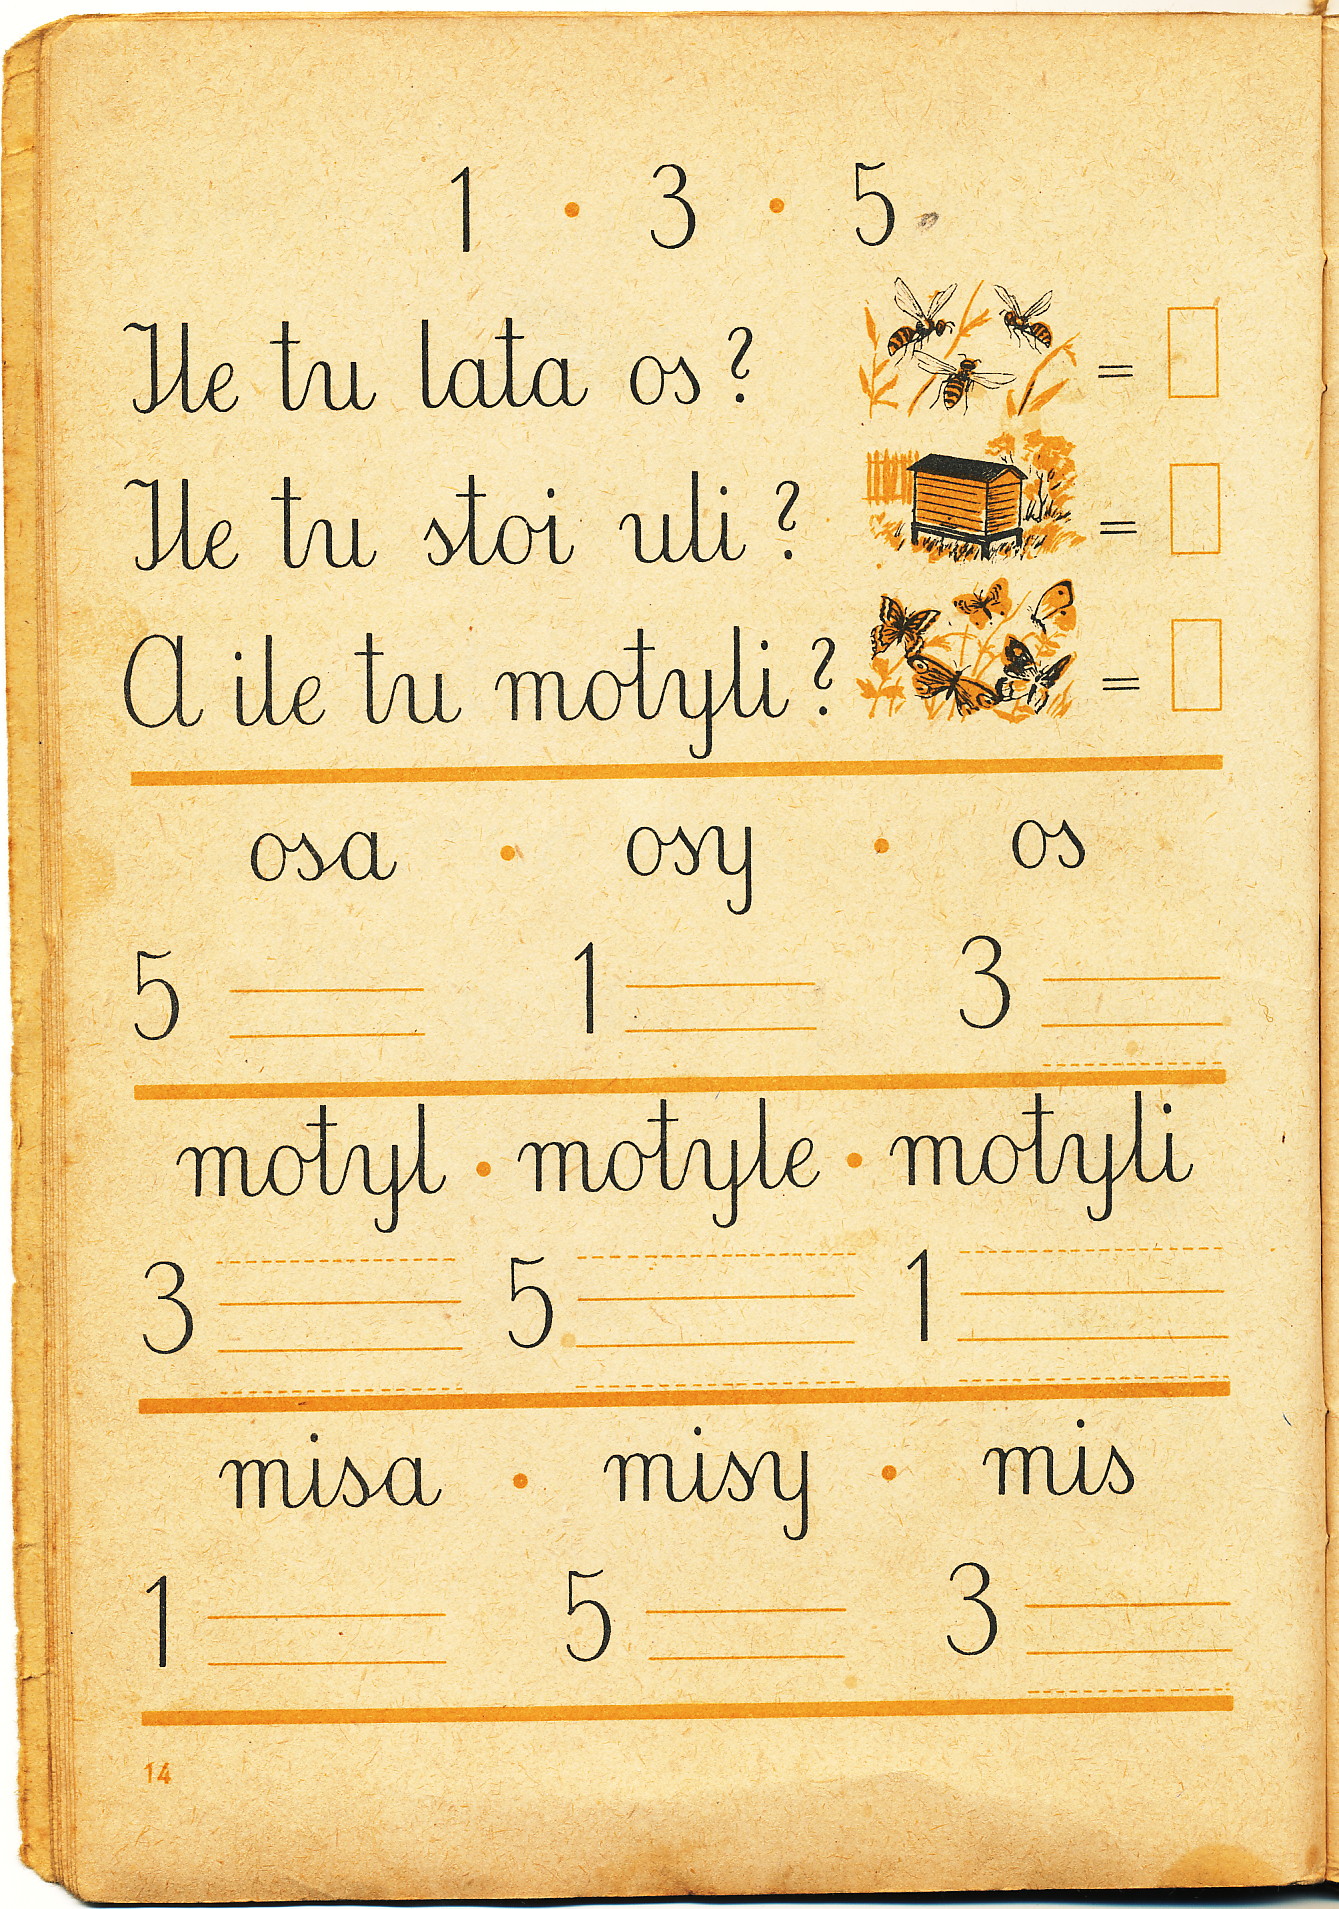 1 • 3 • 5
Ile tu lata os? =
Ile tu stoi uli? =
A ile tu motyli? =
osa • osy • os
5 1 3
motyl • motyle • motyli
3 5 1
misa • misy • mis
1 5 3
14